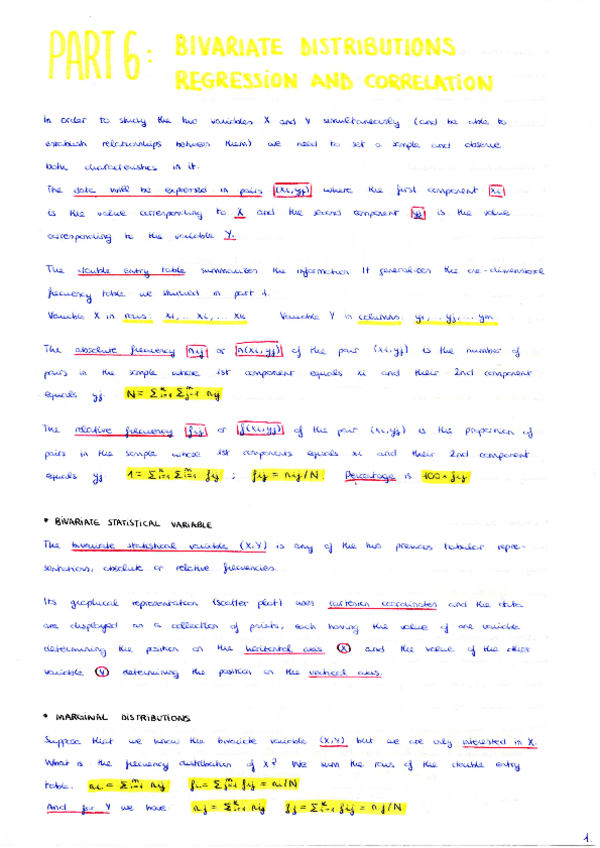 PART 6: BIVARIATE DISTRIBUTIONS
REGRESSION AND CORRELATION
In order to study the two variables X and Y simultaneously (and be able to
establish relationships between them) we need to set a sample and observe
both characteristics in it.
The data will be expressed in pairs (xi, yj) where the first component xi
is the value corresponding to X and the second component yj is the value
corresponding to the variable Y.
The double entry table summarizes the information. It generalizes the one-dimensional
frequency table we studied in part 1.
Variable X in rows: x1, .. xi, ... xk Variable Y in columns: y1, .. yj, ... ym
The absolute frequency nij or n(xi, yj) of the pair (xi, yj) is the number of
pairs in the sample whose 1st component equals xi and their 2nd component
equals yj N = Σᵏi=1 Σᵐj=1 nij
The relative frequency fij or f(xi, yj) of the pair (xi, yj) is the proportion of
pairs in the sample whose 1st components equals xi and their 2nd component
equals yj 1 = Σᵏi=1 Σᵐi=1 fij ; fij = nij/N. Percentage is 100 × fij
• BIVARIATE STATISTICAL VARIABLE
The bivariate statistical variable (X,Y) is any of the two previous tabular repre-
sentations, absolute or relative frequencies.
Its graphical representation (scatter plot) uses cartesian coordinates and the data
are displayed as a collection of points, each having the value of one variable
determining the position on the horizontal axis (X) and the value of the other
variable (Y) determining the position on the vertical axis.
• MARGINAL DISTRIBUTIONS
Suppose that we know the bivariate variable (X,Y) but we are only interested in X.
What is the frequency distribution of X? We sum the rows of the double entry
table. ni. = Σᵐj=1 nij fi. = Σᵐj=1 fij = ni/N
And for Y we have: nj = Σᵏi=1 nij fj = Σᵏi=1 fij = nj/N
1.